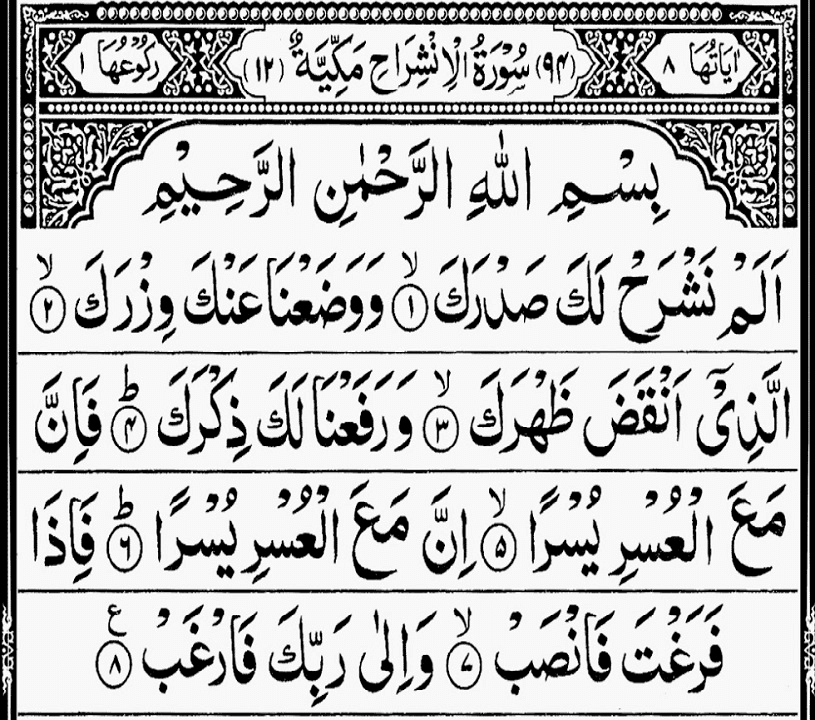 اٰيَاتُهَا ٨ (٩٤) سُوْرَةُ الْاِنْشِرَاحِ مَكِّيَّةٌ (١٢) رُكُوْعُهَا ١
بِسْمِ اللّٰهِ الرَّحْمٰنِ الرَّحِيْمِ
اَلَمْ نَشْرَحْ لَكَ صَدْرَكَ ۙ﴿١﴾ وَوَضَعْنَا عَنْكَ وِزْرَكَ ۙ﴿٢﴾
الَّذِيْۤ اَنْقَضَ ظَهْرَكَ ۙ﴿٣﴾ وَرَفَعْنَا لَكَ ذِكْرَكَ ؕ﴿٤﴾ فَاِنَّ
مَعَ الْعُسْرِ يُسْرًا ۙ﴿٥﴾ اِنَّ مَعَ الْعُسْرِ يُسْرًا ؕ﴿٦﴾ فَاِذَا
فَرَغْتَ فَانْصَبْ ۙ﴿٧﴾ وَاِلٰى رَبِّكَ فَارْغَبْ ﴿٨﴾ ع